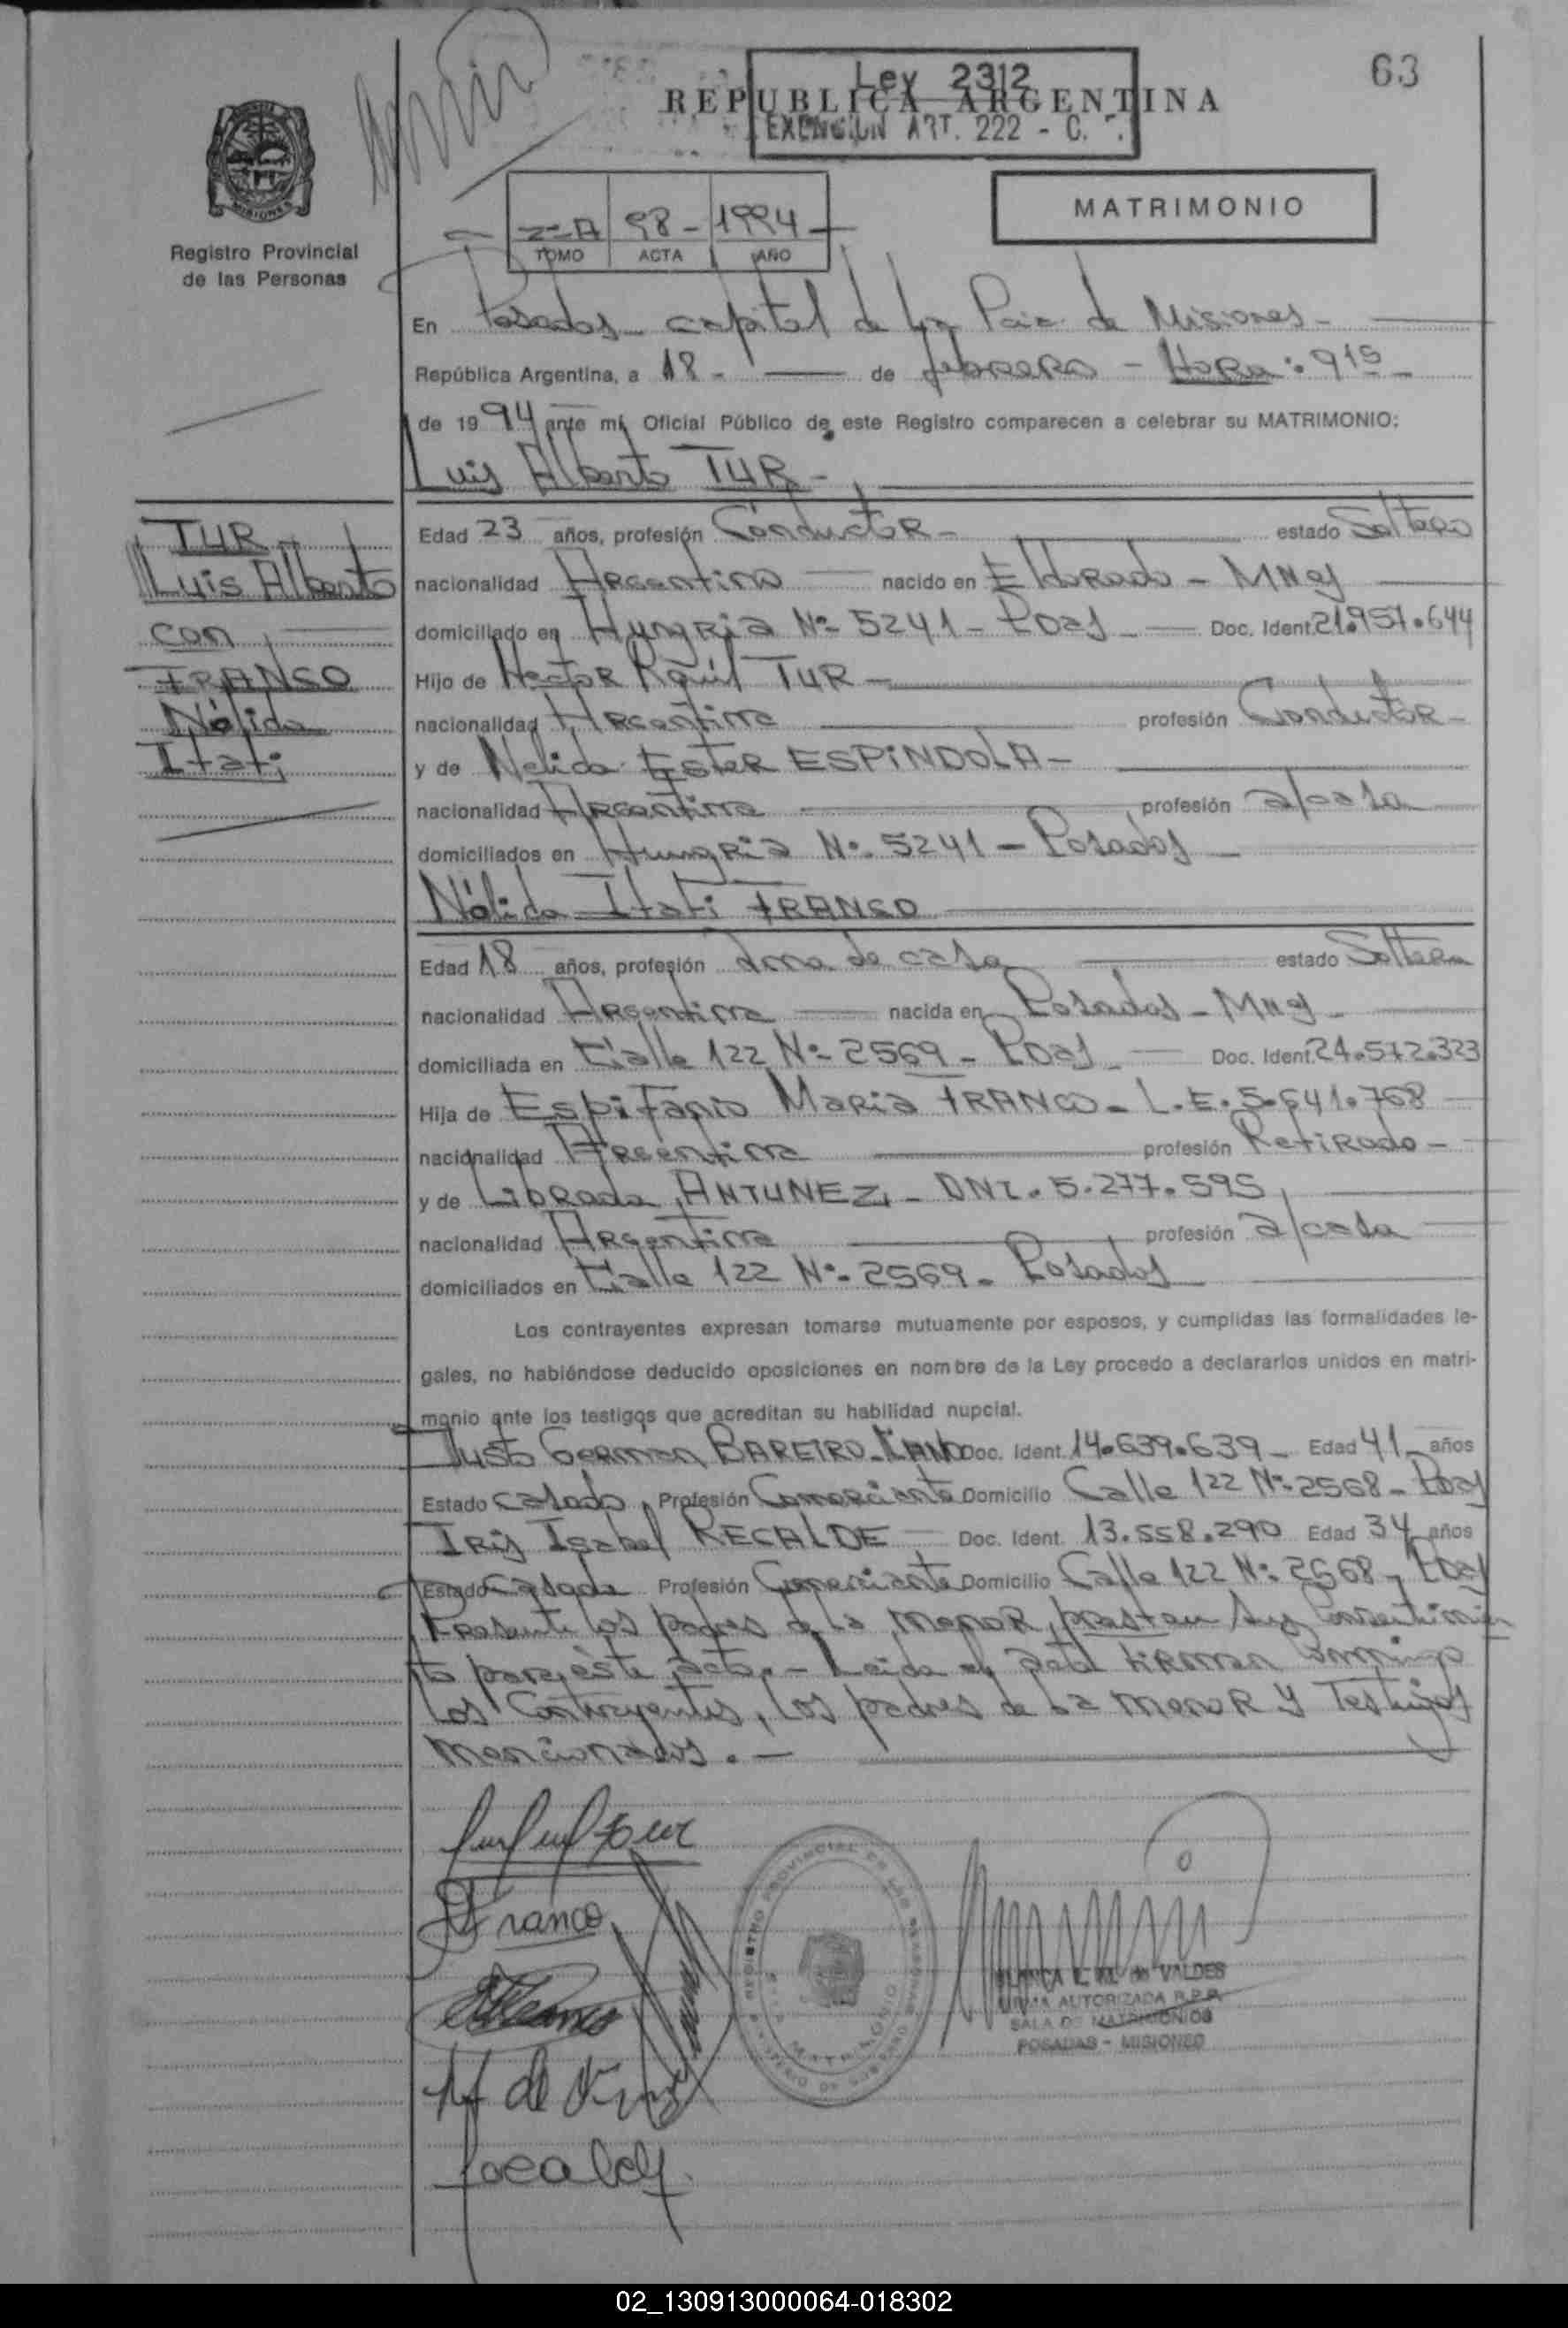 63
Ley 2312
REPUBLICA ARGENTINA
EXENCION ART. 222 - C.
MATRIMONIO
MISIONES
Registro Provincial
de las Personas
98 - 1994
TOMO ACTA AÑO
En Posadas - capital de la Pcia. de Misiones -
República Argentina, a 18 - de febrero - Hora: 9 15 -
de 1994 ante mí, Oficial Público de este Registro comparecen a celebrar su MATRIMONIO:
Luis Alberto TUR -
TUR -
Luis Alberto
con
FRANCO
Nélida
Itati
Edad 23 años, profesión Conductor - estado Soltero
nacionalidad Argentina nacido en Eldorado - Mnes
domiciliado en Hungria Nº 5241 - Pdas - Doc. Ident. 21.957.644
Hijo de Hector Raúl TUR -
nacionalidad Argentina profesión Conductor -
y de Nelida Ester ESPINDOLA -
nacionalidad Argentina profesión a/casa
domiciliados en Hungria Nº 5241 - Posadas -
Nélida Itati FRANCO
Edad 18 años, profesión Ama de casa estado Soltera
nacionalidad Argentina nacida en Posadas - Mnes -
domiciliada en Calle 122 Nº 2569 - Pdas - Doc. Ident. 24.572.323
Hija de Epifanio Maria FRANCO - L.E. 5.641.768
nacionalidad Argentina profesión Retirado -
y de Librada ANTUNEZ, - DNI. 5.277.595
nacionalidad Argentina profesión a/casa
domiciliados en Calle 122 Nº 2569 - Posadas
Los contrayentes expresan tomarse mutuamente por esposos, y cumplidas las formalidades le-
gales, no habiéndose deducido oposiciones en nombre de la Ley procedo a declararlos unidos en matri-
monio ante los testigos que acreditan su habilidad nupcial.
Justo German BAREIRO - CANO Doc. Ident. 14.639.639 - Edad 41 años
Estado casado, Profesión Comerciante Domicilio Calle 122 Nº 2568 - Pdas
Iris Isabel RECALDE - Doc. Ident. 13.558.290 Edad 34 años
Estado Casada Profesión Comerciante Domicilio Calle 122 Nº 2568 - Pdas
Presente los padres de la menor, prestan sus Consentimien
to para éste acto. - Leida el acta firman conmigo
los Contrayentes, los padres de la menor y Testigos
mencionados. -
Franco
REGISTRO PROVINCIAL DE LAS PERSONAS
MATRIMONIO
BLANCA de VALDES
FIRMA AUTORIZADA R.P.P.
SALA DE MATRIMONIOS
POSADAS - MISIONES
02_130913000064-018302